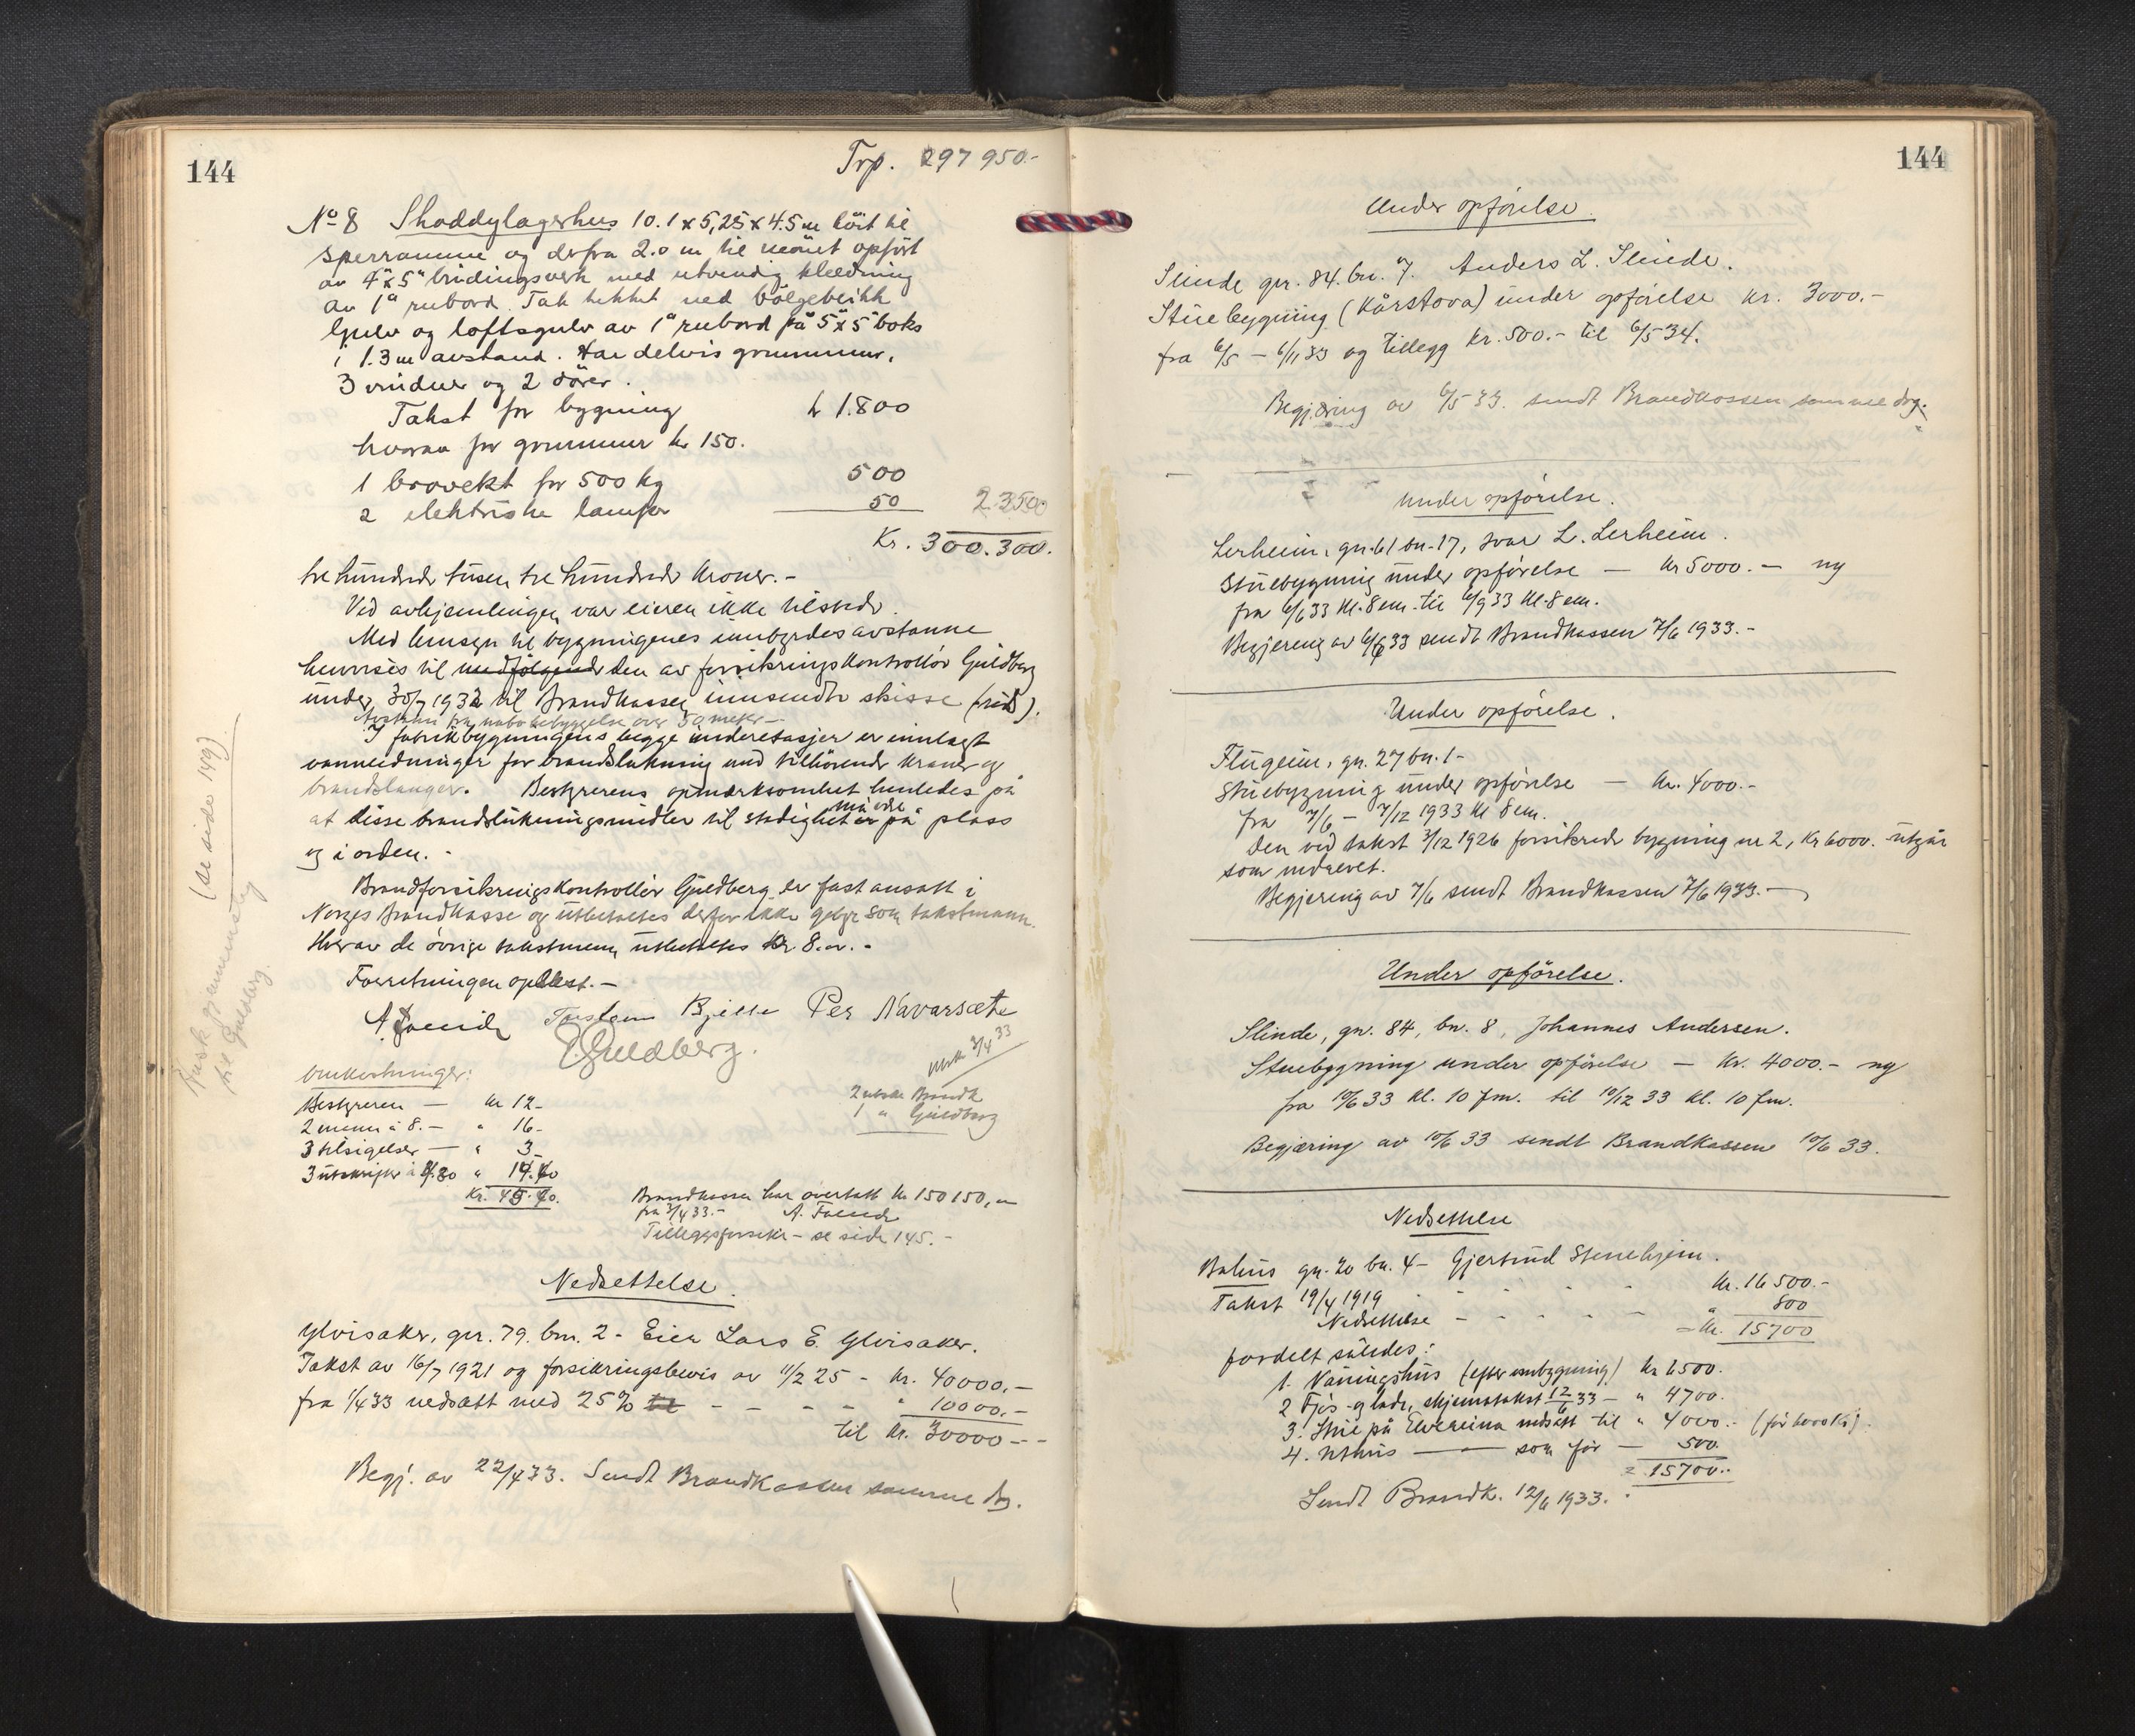 144
Trp. 297 950.-
No 8 Shoddylagerhus 10.1 x 5,25 x 4.5 m höit til
sperramme og derfra 2.0 m til mönet opfört
av 4"x5" bindingsverk med utvendig klædning
av 1" rubord. Tak tekket med bölgeblikk
Gulv og loftsgulv av 1" rubord på 5"x5" boks
i 1.3 m avstand. Har delvis grunnmur,
3 vinduer og 2 dörer.
Takst for bygning kr 1.800
hvorav for grunnmur kr 150.
1 brovekt for 500 kg 500
2 elektriske lamper 50 2350
Kr. 300.300.
tre hundrede tusen tre hundrede kroner.-
Ved avhjemlingen var eieren ikke tilstede.
Med hensyn til bygningenes innbyrdes avstanne
henvises til medfölgende den av forsikringskontrollör Guldberg
under 30/7 1932 til Brandkassen innsendte skisse
Avstann fra nabobebyggelse over 50 meter.-
I fabrikbygningens begge underetasjer er innlagt
vannledninger for brandslukning med tilhörende kraner og
brandslanger. Bestyrerens opmerksomhet henledes på
at disse brandslukningsmidler til stadighet må være på plass
og i orden.-
Brandforsikringskontrollör Guldberg er fast ansatt i
Norges Brandkasse og utbetales derfor ikke gebyr som takstmann.
Hver av de övrige takstmenn utbetales kr. 8.00.-
Forretningen oplest.-
A. Foende Torstein Bjelle Per Navarsete
E Guldberg.
(se side 149)
Rusk gjennemslag
til Guldberg.
Omkostninger:
Bestyreren — kr 12-
2 menn à 8.- " 16-
3 tilsigelser — " 3-
3 utskrifter à 4.80 " 14.40
Kr. 45.40.
utsk. 3/4 33
2 utskr. Brandk
1 " Guldberg
Brandkassen har overtatt kr 150150,00
fra 3/4 33.- A. Foende
Tilleggsforsikr - se side 145.-
Nedsettelse.
Ylvisaker, gnr. 79, bnr. 2 - Eier Lars E. Ylvisaker.
Takst av 16/7 1921 og forsikringsbevis av 11/2 25 - kr. 40000.-
fra 1/4 33 nedsatt med 25% til - - - - " 10000.-
til kr. 30000--
Begj. av 22/4 33. Sendt Brandkassen samme dag.
144
Under opförelse.
Slinde gnr. 84. bn. 7. Anders L. Slinde.
Stuebygning (Kårstova) under opförelse kr. 3000.-
fra 6/5 - 6/11 33 og tillegg kr. 500.- til 6/5 34.
Begjæring av 6/5 33. sendt Brandkassen samme dag.
Under opförelse.
Lerheim, gn. 61 bn. 17, Ivar L. Lerheim.
Stuebygning under opförelse — kr 5000.- ny
fra 6/6 33 kl. 8 em. til 6/9 33 kl. 8 em.
Begjering av 6/6 33 sendt Brandkassen 7/6 1933.-
Under opförelse.
Flugeim, gn. 27 bn. 1-
Stuebygning under opförelse — kr. 4000.-
fra 7/6 - 7/12 1933 kl 8 em.
Den ved takst 3/12 1926 forsikrede bygning nr 2, kr 6000. utgår
som nedrevet.
Begjering av 7/6 sendt Brandkassen 7/6 1933.-
Under opförelse.
Slinde, gn. 84, bn. 8, Johannes Andersen.
Stuebygning under opförelse — kr. 4000.- ny
fra 10/6 33 kl. 10 fm. til 10/12 33 kl. 10 fm.
Begjæring av 10/6 33 sendt Brandkassen 10/6 33.
Nedsettelse
Bahus gn. 20 bn. 4- Gjertrud Stenehjem.
Takst 19/4 1919 - - - - kr. 16500.-
Nedsettelse - - - - " 800
= kr. 15700
fordelt således:
1. Våningshus (efter ombygning) kr 6500.
2 Fjös-g lade, skjemstakst 12/6 33 - " 4700.
3. Stue på Elvereina nedsatt til " 4000.- (för 4800 kr).
4. Uthus — som för — 500.
= 15700.-
Sendt Brandk. 12/6 1933.